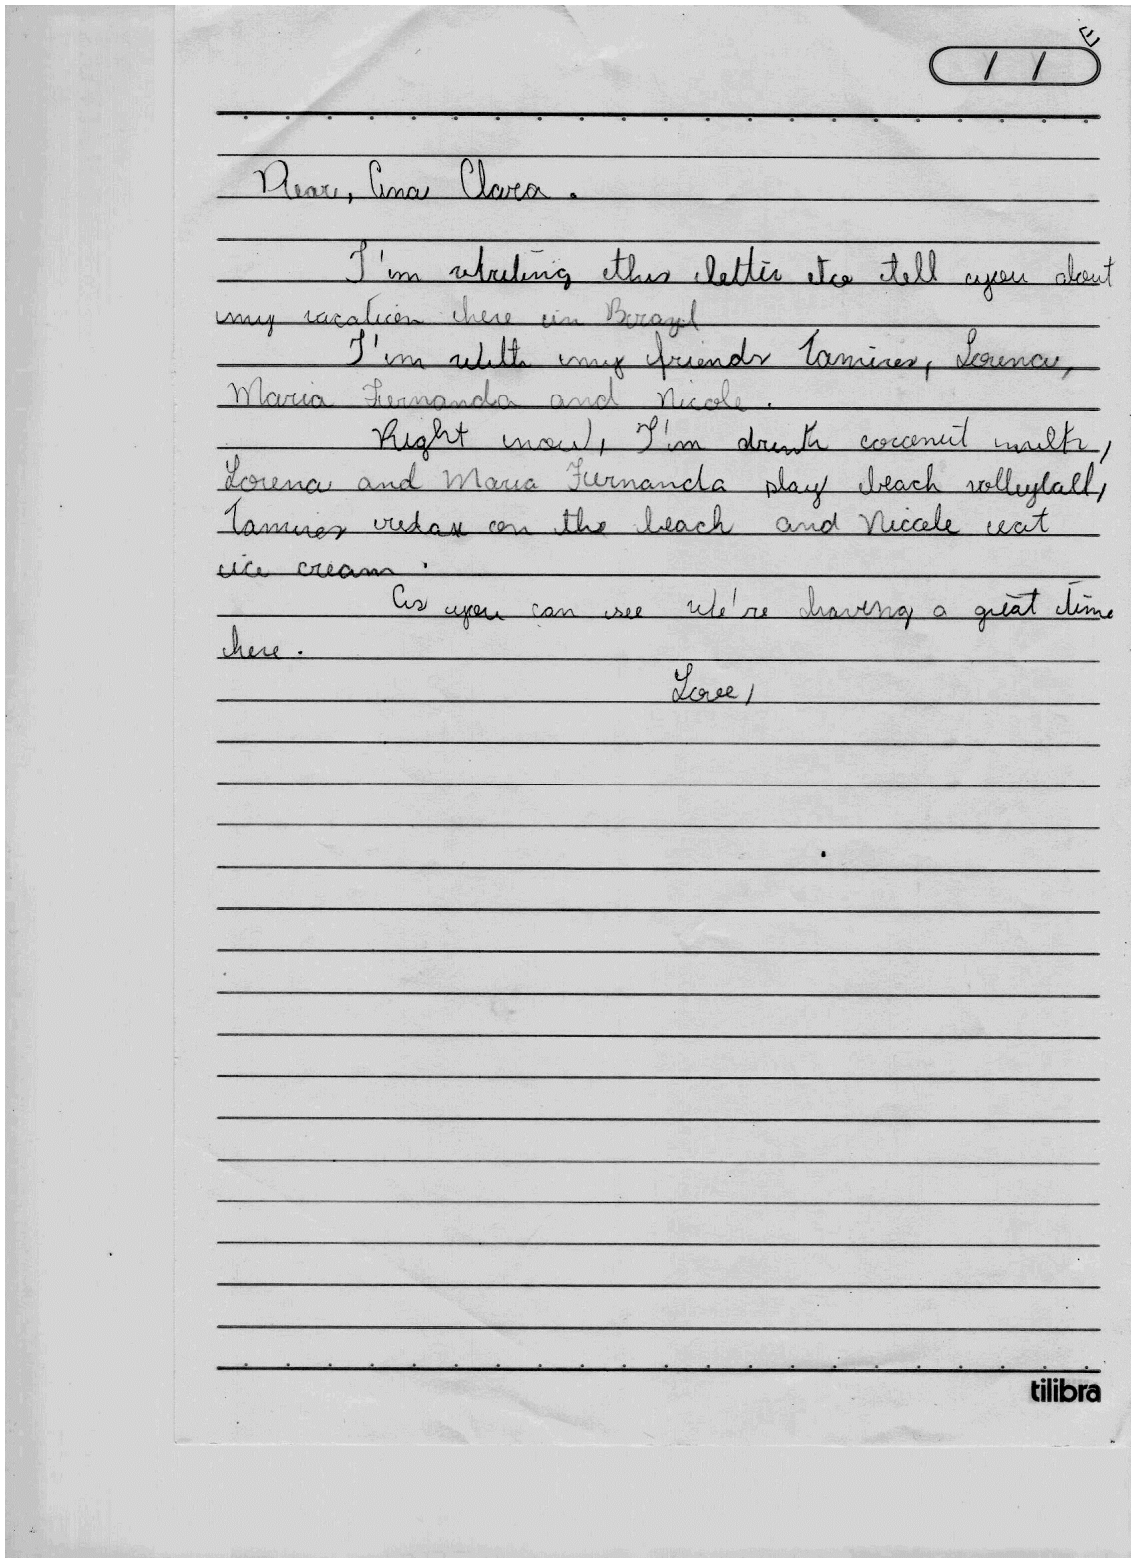 Dear, Ana Clara.
I'm writing this letter to tell you about
my vacation here in Brazil
I'm with my friends Tamires, Lorena,
Maria Fernanda and Nicole.
Right now, I'm drink coconut milk,
Lorena and Maria Fernanda play beach volleyball,
Tamires relax on the beach and Nicole eat
ice cream.
As you can see we're having a great time
here.
Love,
tilibra